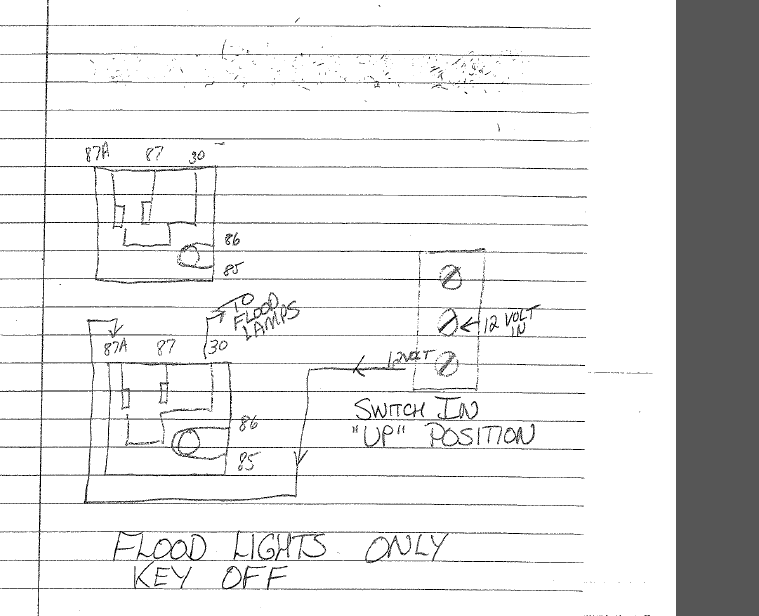 87A 87 30
86
85
TO
FLOOD
LAMPS
12 VOLT
IN
87A 87 30
12VOLT
86
85
SWITCH IN
"UP" POSITION
FLOOD LIGHTS ONLY
KEY OFF